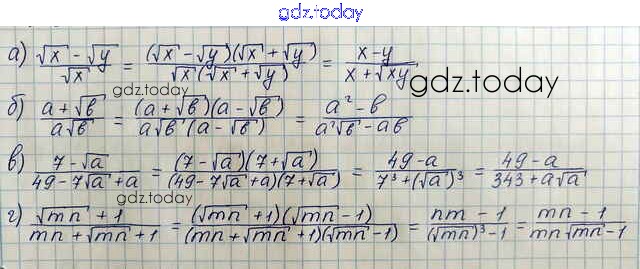 gdz.today
а) (√x - √y)/√x = (√x - √y)(√x + √y)/(√x(√x + √y)) = (x - y)/(x + √xy) gdz.today
б) (a + √b)/(a√b) = (a + √b)(a - √b)/(a√b(a - √b)) = (a² - b)/(a²√b - ab) gdz.today
в) (7 - √a)/(49 - 7√a + a) = (7 - √a)(7 + √a)/((49 - 7√a + a)(7 + √a)) = (49 - a)/(7³ + (√a)³) = (49 - a)/(343 + a√a)
г) (√mn + 1)/(mn + √mn + 1) = (√mn + 1)(√mn - 1)/((mn + √mn + 1)(√mn - 1)) = (nm - 1)/((√mn)³ - 1) = (mn - 1)/(mn√mn - 1) gdz.today